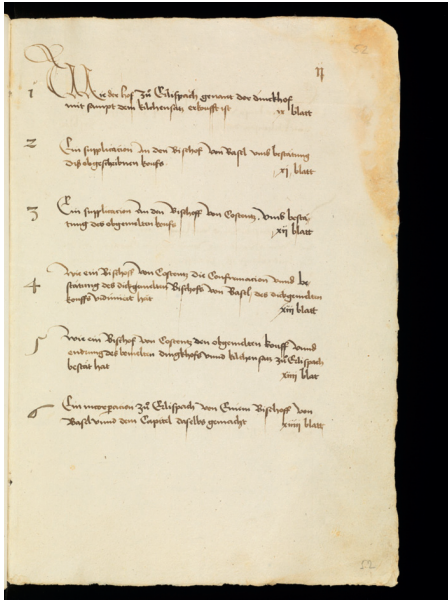 52
ij
1 Wie der hof zů Eilispach genant der dinckhof
mit sampt dem kilchensatz erkoufft ist ix blatt
2 Ein supplicacion an den Bischof von Basel vmb bestätung
diß obgeschribnen koufs xj blatt
3 Ein supplicacion An den Bischoff von Costentz, vmb bestä-
tung des obgemelten koufs xij blatt
4 Wie ein Bischoff von Costentz die Confirmacion vnnd be
statung des dickgemelten Bischofs von Basel, des dickgemelten
kouffs vidimiert hät xiij blatt
5 Wie ein Bischof von Costentz den obgemelten kouff vnnd
des dingkhofs vnnd kilchensatz zů Eilispach
bestät hat xiiij blat
6 Ein incorporacion zů Eilispach von Einem Bischoff von
Basel vnnd dem Capitel daselbs gemacht xiiij blatt
52